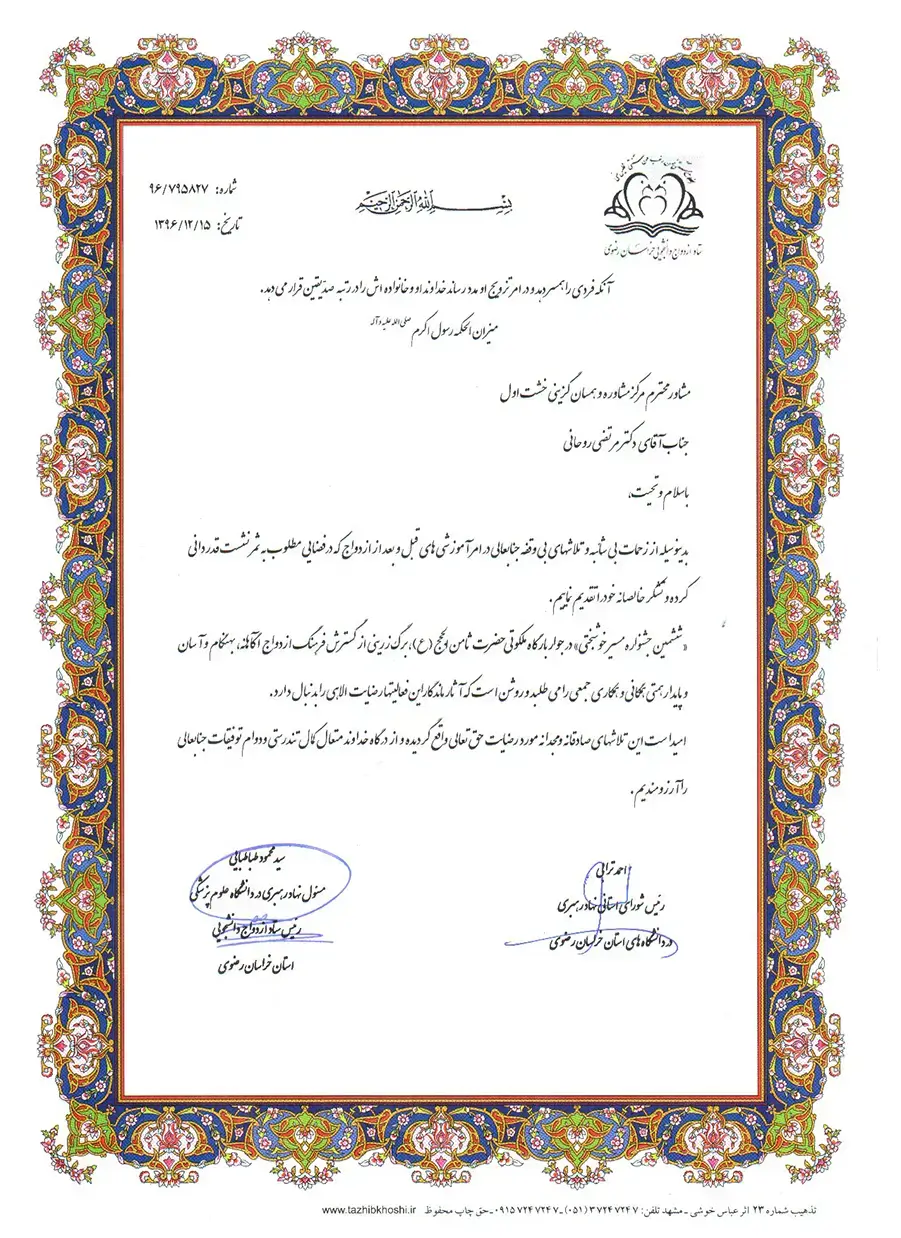 ستاد ازدواج دانشجویی خراسان رضوی
بسم الله الرحمن الرحیم
شماره: ۹۶/۷۹۵۸۲۷
تاریخ: ۱۳۹۶/۱۲/۱۵
آنکه فردی را همسر دهد و در امر تزویج او مدد رساند خداوند او و خانواده اش را در رتبه صدیقین قرار می دهد.
میزان الحکمه رسول اکرم صلی الله علیه و آله
مشاور محترم مرکز مشاوره و همسان گزینی خشت اول
جناب آقای دکتر مرتضی روحانی
باسلام و تحیت،
بدینوسیله از زحمات بی شائبه و تلاشهای بی وقفه جنابعالی در امر آموزشی های قبل و بعد از ازدواج که در فضایی مطلوب به ثمر نشست قدردانی
کرده و تشکر خالصانه خود را تقدیم نماییم.
«ششمین جشنواره مسیر خوشبختی» در جوار بارگاه ملکوتی حضرت ثامن الحجج (ع)، برگ زرینی از گسترش فرهنگ ازدواج آگاهانه، بهنگام و آسان
و پایدار همتی همگانی و همکاری جمعی را می طلبد و روشن است که آثار ماندگار این فعالیتها رضایت الهی را بدنبال دارد.
امید است این تلاشهای صادقانه و مجدانه مورد رضایت حق تعالی واقع گردیده و از درگاه خداوند متعال کمال تندرستی و دوام توفیقات جنابعالی
را آرزومندیم.
احمد ترابی
رئیس شورای استانی نهاد رهبری
در دانشگاه های استان خراسان رضوی
سید محمود طباطبایی
مسئول نهاد رهبری در دانشگاه علوم پزشکی
رئیس ستاد ازدواج دانشجویی
استان خراسان رضوی
تذهیب شماره ۲۳ اثر عباس خوشی ـ مشهد تلفن: ۳۷۲۴۷۲۴۷ (۰۵۱) ـ ۰۹۱۵۷۲۴۷۲۴۷ ـ حق چاپ محفوظ www.tazhibkhoshi.ir